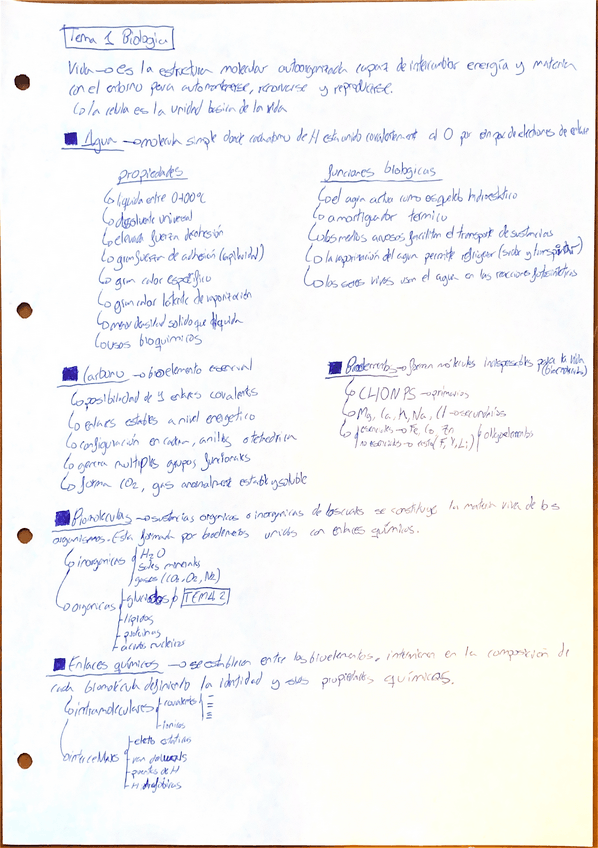 Tema 1 Biologia
Vida → es la estructura molecular autoorganizada capaz de intercambiar energía y materia
con el entorno para automantenerse, renovarse y reproducirse.
↳ la celula es la unidad basica de la vida
Agua → molecula simple donde cada atomo de H esta unido covalentemente al O por un par de electrones de enlace
propiedades
↳ liquida entre 0-100ºC
↳ disolvente universal
↳ elevada fuerza de cohesión
↳ gran fuerza de adhesión (capilaridad)
↳ gran calor especifico
↳ gran calor latente de vaporización
↳ menor densidad solido que liquida
↳ usos bioquimicos
funciones biologicas
↳ el agua actua como esqueleto hidrostático
↳ amortiguador termico
↳ los medios acuosos facilitan el transporte de sustancias
↳ la vaporización del agua permite refrigerar (sudar y transpirar)
↳ los seres vivos usan el agua en las reacciones fotosintéticas
Carbono → bioelemento esencial
↳ posibilidad de 4 enlaces covalentes
↳ enlaces estables a nivel energetico
↳ configuración en cadena, anillos o tetraedrica
↳ genera multiples grupos funcionales
↳ forma CO₂, gas anormalmente estable y soluble
Bioelementos → forman moléculas indispensables para la vida
(biomoleculas)
↳ CHONPS → primarios
↳ Mg, Ca, K, Na, Cl → secundarios
↳ esenciales → Fe, Co, Zn
no esenciales → (F, Y, Li) oligoelementos
Biomoleculas → sustancias organicas o inorganicas de las cuales se constituye la materia viva de los
organismos. Esta formada por bioelementos unidos con enlaces químicos.
↳ inorganicas H₂O
Sales minerales
gases (CO₂, O₂, N₂)
↳ organicas glucidos → TEMA 2
lípidos
proteinas
ácidos nucleicos
Enlaces químicos → se establecen entre los bioelementos, intervienen en la composición de
cada biomolécula definiendo la identidad y sus propiedades químicas.
↳ intramoleculares covalentes - = ≡
Ionicos
electrostaticas
van der waals
puentes de H
Hidrofobicas